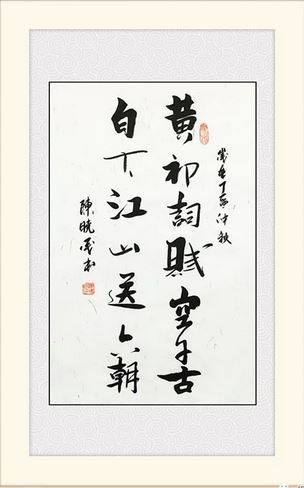 歲在丁仲秋
黄初詞賦空千古
白下江山送六朝
陳曉